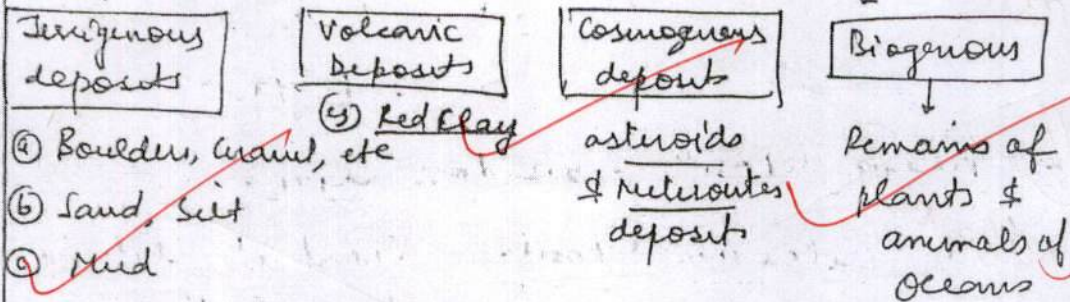 Terrigenous
deposits
ⓐ Boulders, Gravel, etc
ⓑ Sand, Silt
ⓒ Mud
Volcanic
Deposits
eg Red Clay
Cosmogenous
deposit
asteroids
& meteroites
deposit
Biogenous
Remains of
plants &
animals of
Oceans